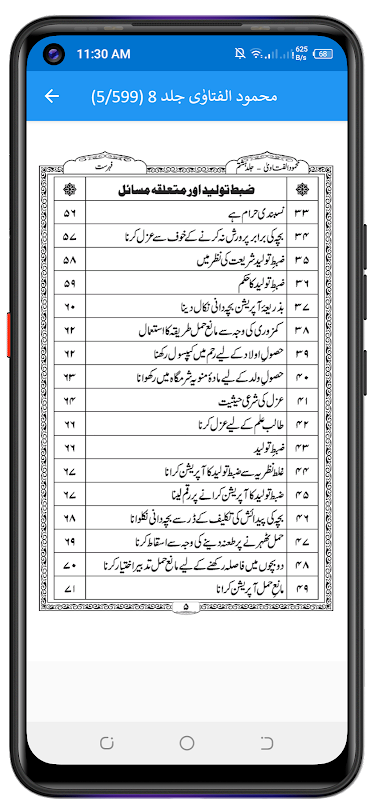 11:30 AM
625 B/s
68
محمود الفتاوٰی جلد 8 (5/599)
محمود الفتاویٰ - جلد ہشتم
فہرست
ضبط تولید اور متعلقہ مسائل
۳۳ نسبندی حرام ہے ۵۶
۳۴ بچہ کی برابر پرورش نہ کرنے کے خوف سے عزل کرنا ۵۷
۳۵ ضبط تولید شریعت کی نظر میں ۵۸
۳۶ ضبط تولید کا حکم ۵۹
۳۷ بذریعۂ آپریشن بچہ دانی نکال دینا ۶۰
۳۸ کمزوری کی وجہ سے مانع حمل طریقہ کا استعمال ۶۲
۳۹ حصول اولاد کے لیے رحم میں کیپسول رکھنا ۶۲
۴۰ حصول ولد کے لیے مادۂ منویہ شرمگاہ میں رکھوانا ۶۳
۴۱ عزل کی شرعی حیثیت ۶۴
۴۲ طالب علم کے لیے عزل کرنا ۶۶
۴۳ ضبط تولید ۶۶
۴۴ غلط نظریہ سے ضبط تولید کا آپریشن کرانا ۶۷
۴۵ ضبط تولید کا آپریشن کرانے پر رقم لینا ۶۷
۴۶ بچہ کی پیدائش کی تکلیف کے ڈر سے بچہ دانی نکلوانا ۶۸
۴۷ حمل ٹھہرنے پر طعنہ دینے کی وجہ سے اسقاط کرنا ۶۹
۴۸ دو بچوں میں فاصلہ رکھنے کے لیے مانع حمل تدبیر اختیار کرنا ۷۰
۴۹ مانع حمل آپریشن کرانا ۷۱
۵